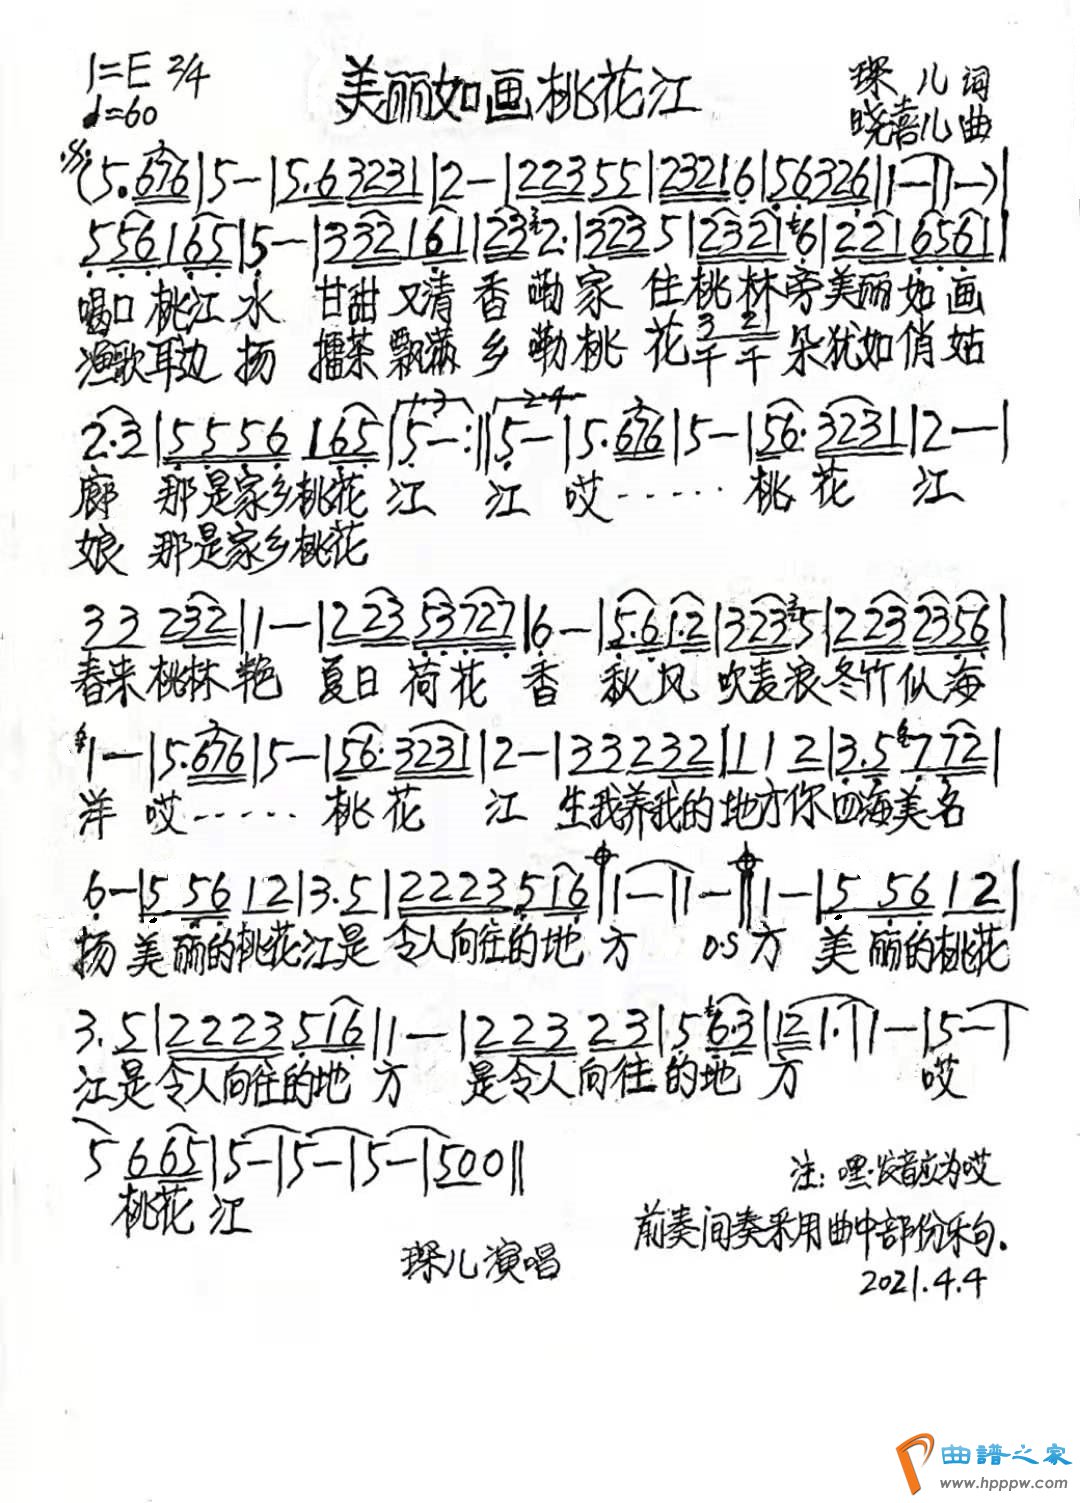 1=E 2/4
♩=60
美丽如画桃花江
琛儿词
晓喜儿曲
(5.676|5—|5.63231|2—|22355|23216|56326|1—|1—)|
556165|5—|332161|232.|3235|23216|2216561|
喝口桃江水 甘甜又清香嘞家住桃林旁美丽如画
渔歌耳边扬 擂茶飘满乡嘞桃花千千朵犹如俏姑
2.3|5556 165|5—:||5—|5.676|5—|56.3231|2—|
廊 那是家乡桃花江 江 哎······桃花江
娘 那是家乡桃花
33 232|1—|223 53727|6—|5.61.2|3235|2232356|
春来桃林艳 夏日荷花香 秋风吹麦浪冬竹似海
1—|5.676|5—|56.3231|2—|33232|112|3.5772|
洋 哎······桃花江 生我养我的地方你四海美名
6—|5 56 12|3.5|2223516|1—|1—||1—|5 56 12|
扬 美丽的桃花江是 令人向往的地方 D.S 方 美丽的桃花
3.5|2223516|1—|22323|5 6.3|12 1.|1—|5—|
江是令人向往的地方 是令人向往的地方 哎
5 665|5—|5—|5—|500||
桃花江
注:嘿·发音应为哎
前奏间奏采用曲中部份乐句.
琛儿演唱
2021.4.4
曲谱之家
www.hpppw.com